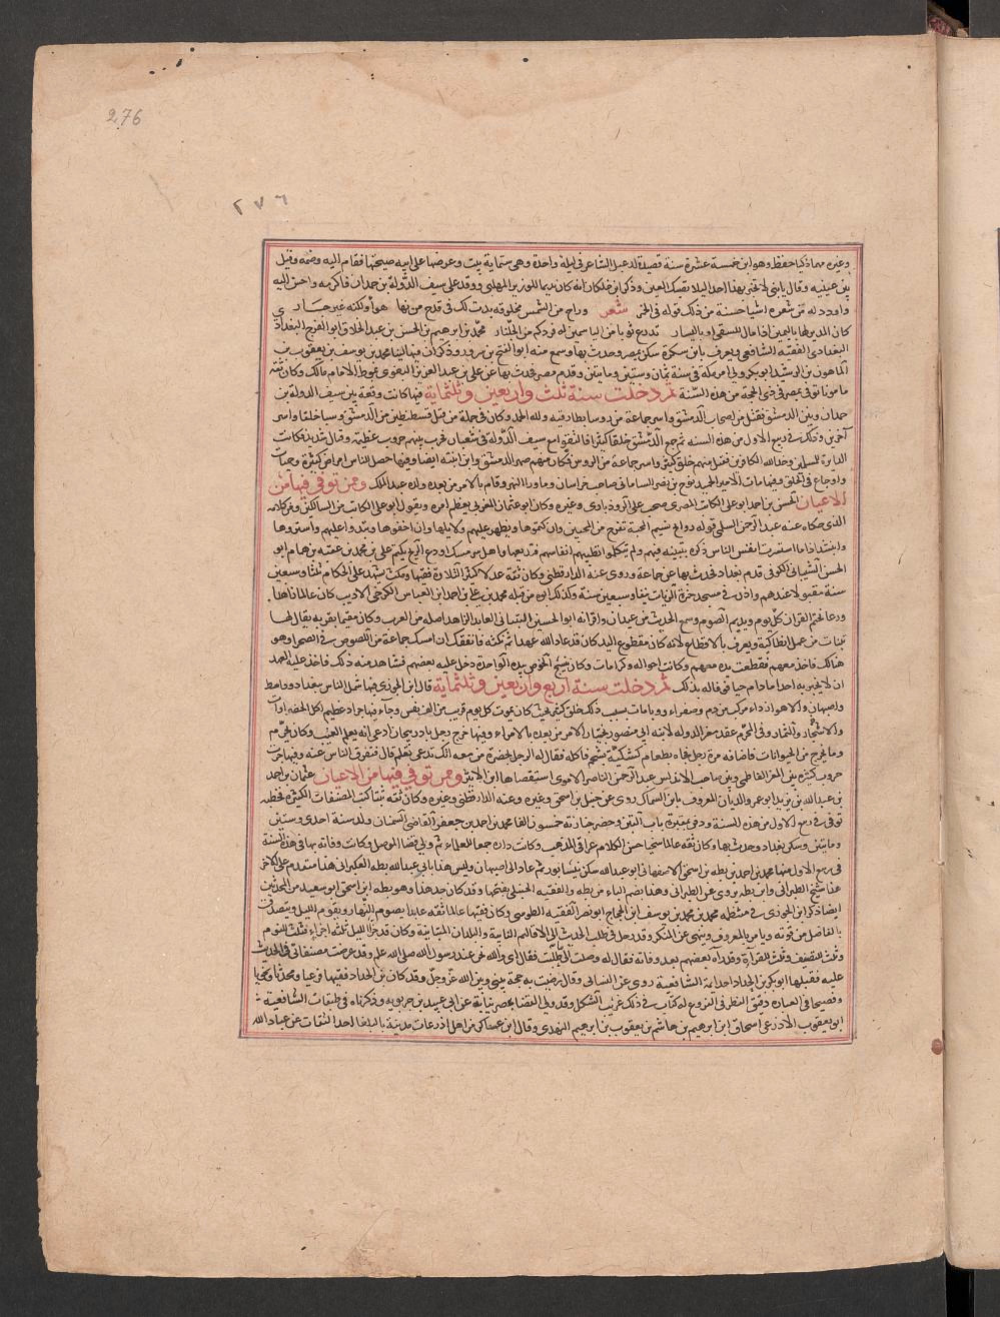 276
٢٧٦
وغيره مما ذكر حفظ وهو ابن خمسة عشرة سنة قصيدة لدعبل الشاعر في ليلة واحدة وهي ستماية بيت وعرضها على ابيه صبيحتها فقام اليه وضمه وقبل
بين عينيه وقال يابني لا تخبر بهذا احدا ليلا تصيبك العين وذكر ابن خلكان انه كان نديما للوزير المهلبي ووفد على سيف الدولة بن حمدان فاكرمه واحسن اليه
واورد له من شعره اشيا حسنة من ذلك قوله في الخمر شعر وراح من الشمس مخلوقه بدت لك في قدح من نهار هواء ولكنه غير جاري
كان المدير لها باليمين اذا مال للسقي او باليسار تدرع ثوبا من الياسمين له فردكم من الجلنار محمد بن ابرهيم بن الحسن بن عبد الخلاق ابو الفرج البغدادي
البغدادي الفقيه الشافعي ويعرف بابن سكرة سكن بمصر وحدث بها وسمع منه ابو الفتح بن مسرور وذكر ان فيه لينا محمد بن يوسف بن يعقوب بن
المأمون بن الرشيد ابو بكر ولي امر مكه في سنة ثمان وستين ومايتين وقدم مصر فحدث بها عن علي بن عبد العزيز البغوي بموطا الامام مالك وكان ثقة
مامونا توفي بمصر في ذي الحجة من هذه السنة ثم دخلت سنة ثلث واربعين وثلثماية فيها كانت وقعة بين سيف الدولة بن
حمدان وبين الدمستق فقتل من اصحاب الدمستق واسر جماعة من روسا بطارقته ولله الحمد وكان في جملة من قتل قسطنطين من الدمستق وسبا خلقا واسر
آخرين وذلك في ربيع الاول من هذه السنه ثم جمع الدمستق خلقا كثيرا فالتقوا مع سيف الدولة في شعبان فجرت بينهم حروب عظيمة وقتال شديد فكانت
الدايرة للمسلمين وخذ الله الكافرين فقتل منهم خلق كثير واسر جماعة من الروس فكان منهم صهر الدمستق وابن ابنته ايضا وفيها حصل للناس امراض كثيرة وحميات
واوجاع في الحلق وفيها مات الامير الحميد نوح بن نصر الساماني صاحب خراسان وماورا النهر وقام بالامر من بعده ولده عبد الملك وممن توفي فيها من
الاعيان الحسن بن احمد ابو علي الكاتب المصري صحب علي الروذباري وغيره وكان ابو عثمان المغربي يعظم امره ويقول ابو علي الكاتب من السالكين ومن كلامه
الذي حكاه عنه عبد الرحمن السلمي قوله روايح نسيم المحبة تفوح من المحبين وان كتموها ويظهر عليهم دلايلها وان اخفوها وتبدوا عليهم وان ستروها
وانشد اذا ما استسرت انفس الناس ذكره تبينته فيهم ولم يتكلموا تطيبهم انفاسهم فتذيعها وهل سر مسك اودع الريح يكتم علي بن محمد بن عقبه بن همام ابو
الحسن الشيباني الكوفي قدم بغداد فحدث بها عن جماعة وروى عنه الدارقطني وكان ثقة عدلا كثير التلاوة فقيها ومكث يشهد على الحكام ثلثا وسبعين
سنة مقبولا عندهم واذن في مسجد حمزة الزيات نيفا وسبعين سنة وكذلك ابوه من قبله محمد بن علي بن احمد ابن العباس الكرخي الاديب كان عالما زاهدا
ورعا يختم القران كل يوم ويديم الصوم وسمع الحديث من عبدان واقرانه ابو الحسين التيناتي العابد الزاهد اصله من العرب وكان مقيما بقرية يقال لها
تينات من عمل انطاكية ويعرف بالاقطع لانه كان مقطوع اليد كان قد عاهد الله عهدا ثم نكثه فاتفق له ان امسك جماعة من اللصوص في الصحرا وهو
هنالك فاخذ معهم فقطعت يده معهم وكانت له احوال وكرامات وكان ينسج الخوص بيده الواحدة دخل عليه بعضهم فشاهد منه ذلك فاخذ عليه العهد
ان لا يخبر به احدا مادام حيا فوفا له بذلك ثم دخلت سنة اربع واربعين وثلثماية قال ابن الجوزي فيها شمل الناس ببغداد وواسط
واصبهان والاهواز داء مركب من دم وصفراء ووباء مات بسبب ذلك خلق كثير بحيث كان يموت كل يوم قريب من الف نفس وجاء فيها جراد عظيم اكل الخضراوات
والاشجار والثمار وفي المحرم عقد معز الدولة لابنه ابي منصور بختيار الامر من بعده بامرة الامراء وفيها خرج رجل باذربيجان ادعى انه يعلم الغيب وكان يحرم
وما يخرج من الحيوانات فاضافه مرة رجل فجاء بطعام كشكية بشحم فاكله فقال له الرجل بحضرة من معه انك تدعي تعلم قال فتفرق الناس عنه وفيها جرت
حروب كثيره بين المعز الفاطمي وبين صاحب الاندلس عبد الرحمن الناصر الاموي استقصاها ابن الاثير وممن توفي فيها من الاعيان عثمان بن احمد
بن عبد الله بن يزيد ابو عمرو الدقاق المعروف بابن السماك روى عن حنبل بن اسحق وغيره وعنه الدارقطني وغيره وكان ثقة ثبتا كتب المصنفات الكثيره بخطه
توفي في ربيع الاول من هذه السنة ودفن بمقبرة باب التبن وحضر جنازته خمسون الفا محمد بن احمد بن جعفر القاضي السمنان ولد سنة احدى وستين
ومايتين وسكن بغداد وحدث بها وكان ثقة عالما سخيا حسن الكلام عراقي المذهب وكانت داره مجمعا للعلماء ثم ولي قضا الموصل وكانت وفاته بها في هذه السنة
في ربيع الاول منها محمد بن احمد بن بطه بن اسحق الاصفهاني ابو عبد الله سكن نيسابور ثم عاد الى اصبهان وليس هذا بابي عبد الله بطه العكبري هذا متقدم على الاخر
هذا شيخ الطبراني وابن بطه يروى عن الطبراني وهذا بضم الباء من بطه والفقيه الحنبلي بفتحها وقد كان جد هذا وهو بطه ابن اسحق ابو سعيد من المحدثين
ايضا ذكر ابن الجوزي في منتظمه محمد بن محمد بن يوسف ابن الحجاج ابو نصر الفقيه الطوسي وكان فقيها عالما ثقة عابدا يصوم النهار ويقوم الليل ويتصدق
بالفاضل من قوته ويامر بالمعروف وينهى عن المنكر وقد رحل في طلب الحديث الى الاقاليم النايية والبلدان المتباينة وكان قد جزا الليل ثلثة اجزاء فثلث للنوم
وثلث للتصنيف وثلث للقرآءة وقد رآه بعضهم بعد وفاته فقال له وصلت الى ما طلبت فقال اي والله نحن عند رسول الله صلى الله عليه وسلم وقد عرضت مصنفاتي في الحديث
عليه فقبلها ابو بكر بن الحداد احد ايمة الشافعية روى عن النسائي وقال رضيت به حجة بيني وبين الله عز وجل وقد كان بن الحداد فقيها فروعيا ومحدثا ونحويا
وفصيحا في العباره دقيق النظر في الفروع له كتاب في ذلك غريب الشكل وقد ولي القضا بمصر نيابة عن ابي عبيد بن حربويه وذكرناه في طبقات الشافعية
ابو يعقوب الاذرعي اسحاق ابن ابرهيم بن هاشم بن يعقوب بن ابرهيم النهدي وقال ابن عساكر من اهل اذرعات مدينة بالبلقا احد الثقات من عباد الله